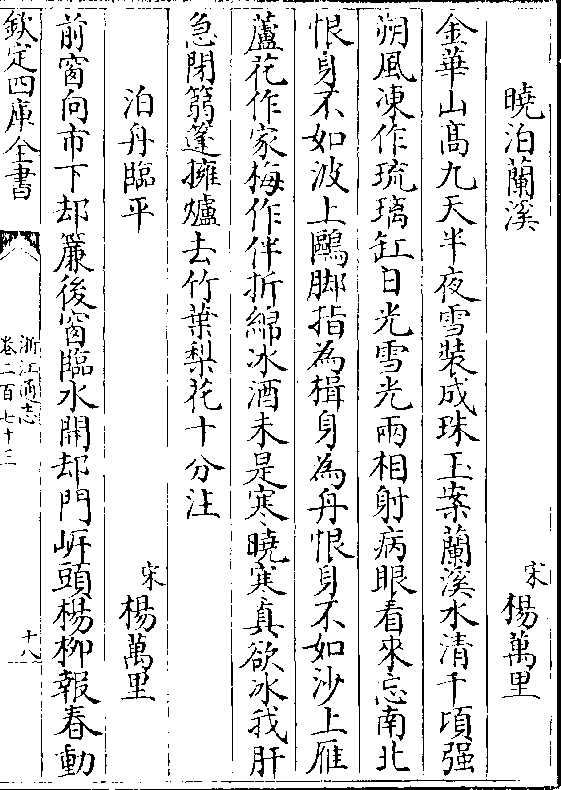 曉泊蘭溪　宋楊萬里
金華山髙九天半夜雪裝成珠玉案蘭溪水清千頃强
朔風凍作琉璃缸日光雪光兩相射病眼看來忘南北
恨身不如波上鷗脚指為楫身為舟恨身不如沙上雁
蘆花作家梅作伴折綿冰酒未是寒曉寒真欲冰我肝
急閉篛篷擁爐去竹葉梨花十分注
泊舟臨平　宋楊萬里
前窗向市下却簾後窗臨水開却門㟁頭楊栁報春動
欽定四庫全書
浙江通志
卷二百七十三
十八